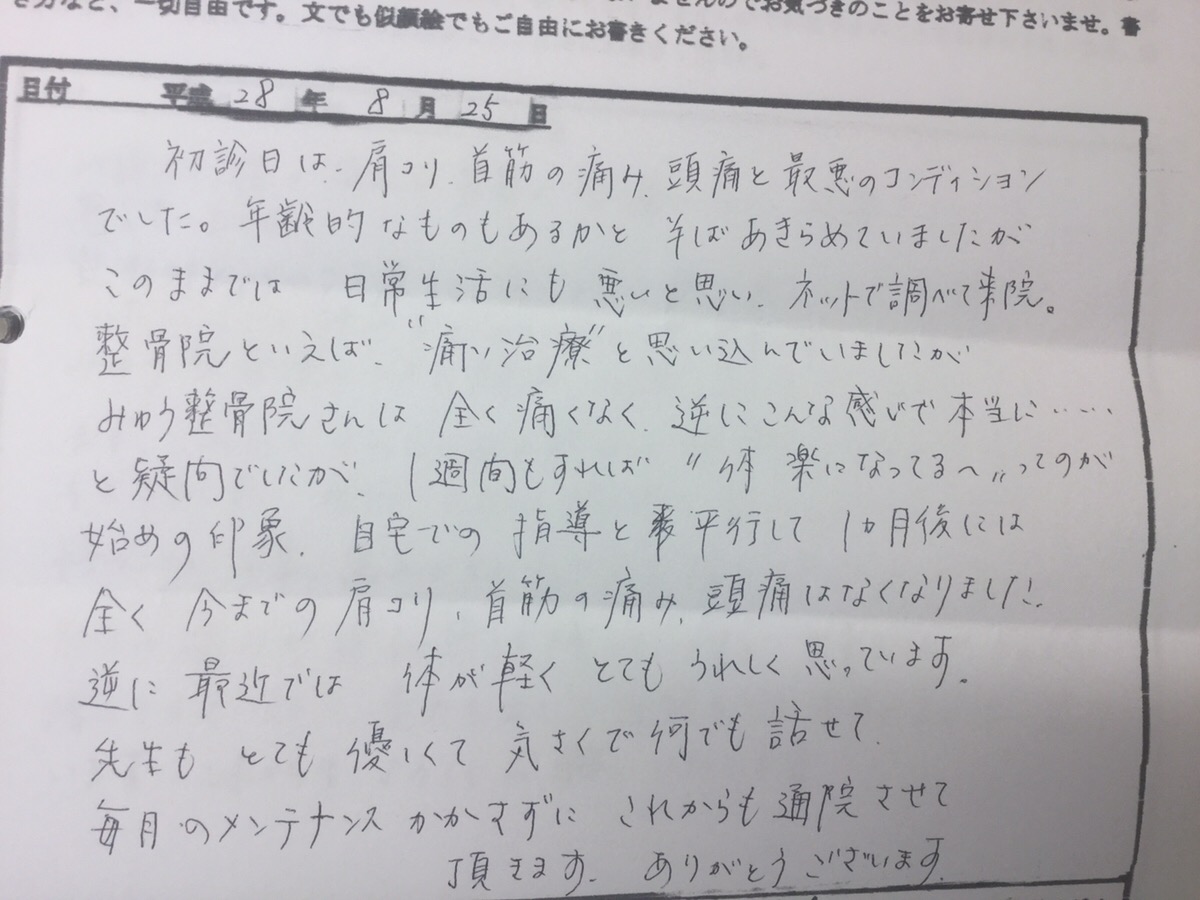 き方など、一切自由です。文でも似顔絵でもご自由にお書きください。
ませんのでお気づきのことをお寄せ下さいませ。書
日付 平成 28 年 8 月 25 日
初診日は、肩コリ、首筋の痛み、頭痛と最悪のコンディション
でした。年齢的なものもあるかと半ばあきらめていましたが
このままでは 日常生活にも悪いと思い、ネットで調べて来院。
整骨院といえば、“痛い治療”と思い込んでいましたが
みゅう整骨院さんは 全く痛くなく、逆にこんな感じで本当に‥‥
と疑問でしたが、1週間もすれば “体 楽になってるへ”ってのが
始めの印象。自宅での 指導と平行して 1ヵ月後には
全く 今までの肩コリ、首筋の痛み、頭痛はなくなりました!
逆に 最近では 体が軽く とても うれしく思っています。
先生も とても 優しくて 気さくで何でも 話せて、
毎月のメンテナンスかかさずに これからも通院させて
頂きます。 ありがとうございます。